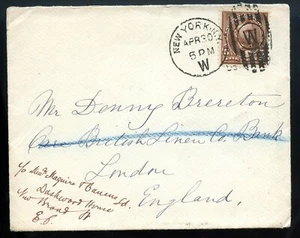 NEW YORK, N.Y.
APR 30
5 PM
W
Mr Donny Brereton
Care British Linen Co. Bank
London
England,
c/o Maguire
Dashwood House
New Broad St
E.C.